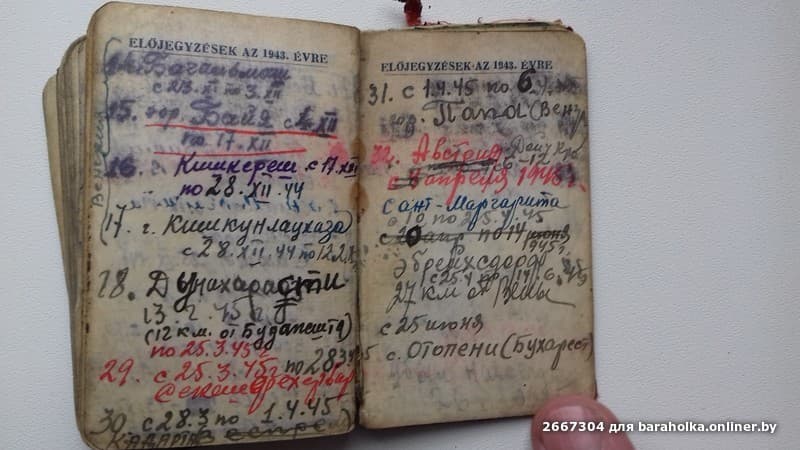 ELŐJEGYZÉSEK AZ 1943. ÉVRE
с 23. XI по 3. XII
15. гор. Байя с 4. XII
по 17. XII
16. г. Кишкереш с 17. XII
по 28. XII. 44
(17. г. Кишкунлацхаза)
с 28. XII. 44 по 12.2.
18. Дунахарасти
13. 2. 45 г
(12 км. от Будапешта)
по 25.3.45 г
29. с 25.3.45 г по 28.3.45
30. с 28.3 по 1.4.45
Венгрия
ELŐJEGYZÉSEK AZ 1943. ÉVRE
31. с 1.4.45 по 6.4.
гор. Папа (Венг
32. Австрия
с 6 апреля 1945 г.
Сант-Маргарита
по 25.4.45
по 14 июня
1945
Эбрейхсдорф
с 25.4 по 14.6.45
27 км от Вены
с 25 июня
с. Отопени (Бухарест)
2667304 для baraholka.onliner.by